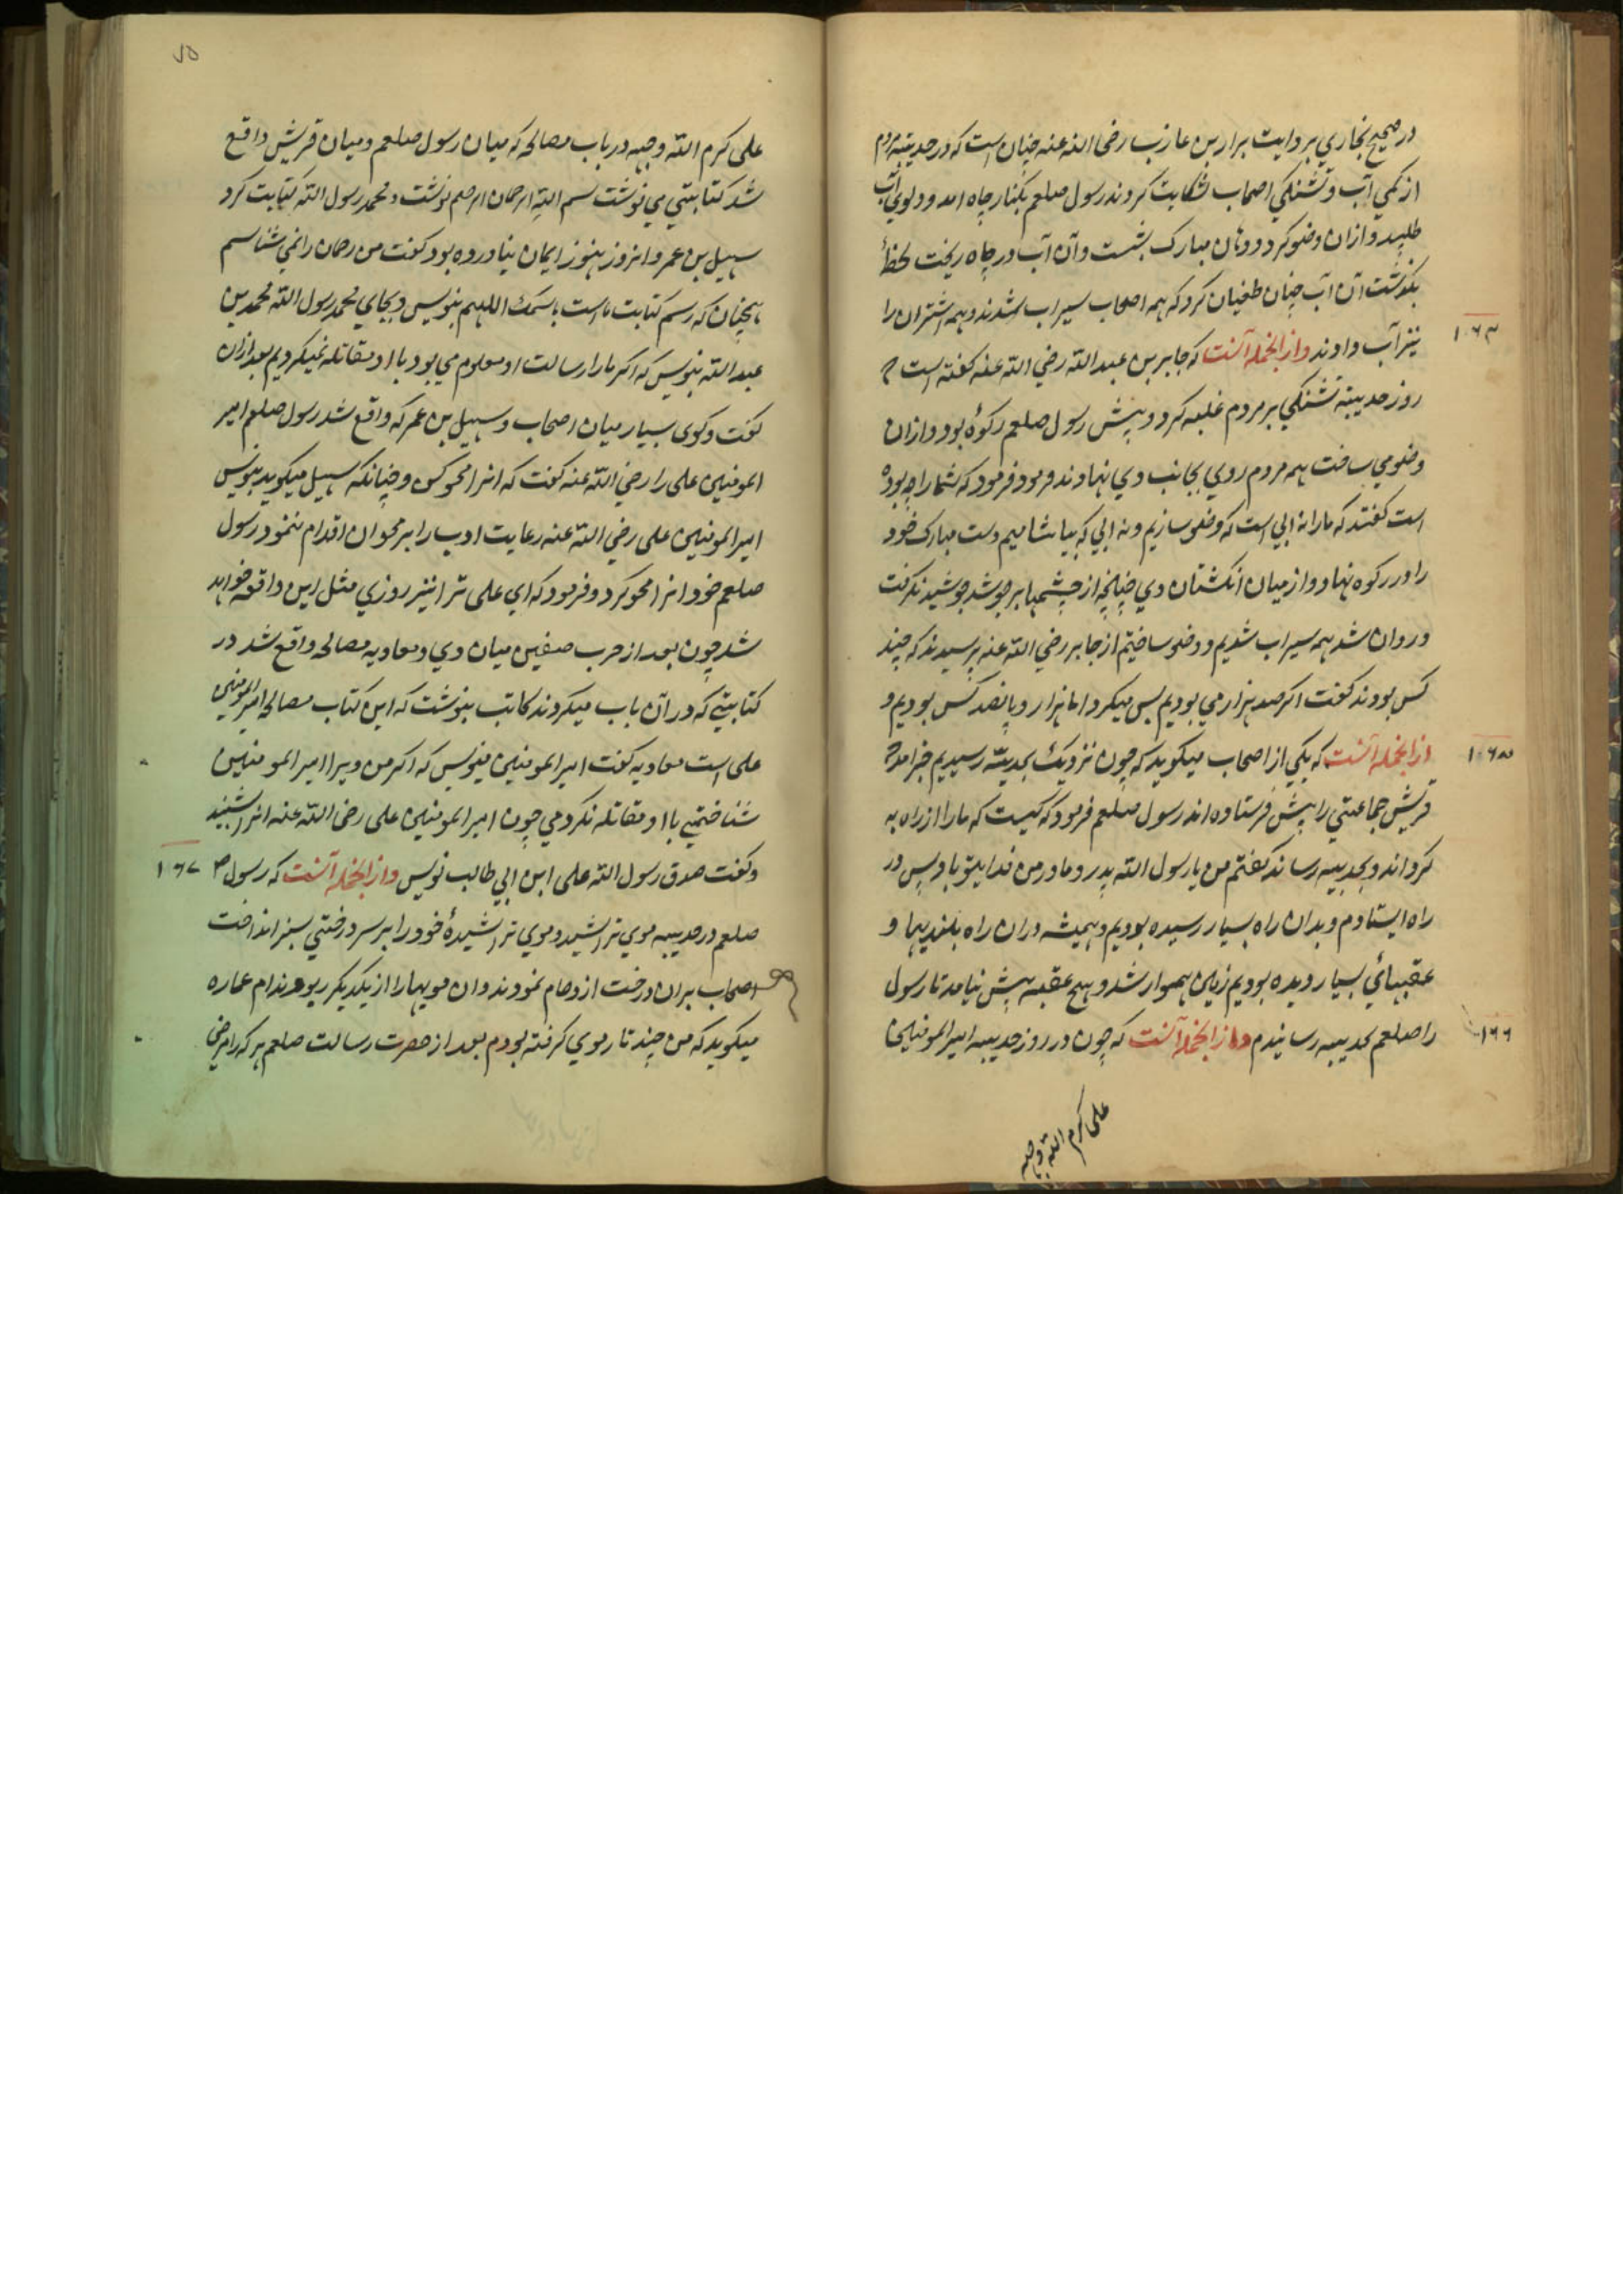 در صحیح بخاری بروایت براء بن عازب رضی الله عنه چنان است که در حدیبیه مردم
از کمی آب و تشنکی اصحاب شکایت کردند رسول صلعم بکنار چاه امد و دلوی آب
طلبید و ازان وضو کرد و دهان مبارک بشست و آن آب در چاه ریخت لحظهٔ
بکذشت آن آب چنان طغیان کرد که همه اصحاب سیراب شدند و همه اشتران را
نیز آب دادند و از انجمله آنست که جابر بن عبد الله رضی الله عنه کفته است
روز حدیبیه تشنکی بر مردم غلبه کرد و پیش رسول صلعم رکوهٔ بود و ازان
وضو می ساخت همه مردم روی بجانب وی نهادند فرمود که شما را چه بوده
است کفتند که ما را نه ابی است که وضو سازیم و نه ابی که بیاشامیم دست مبارک خود
را در رکوه نهاد و از میان انکشتان وی چنانچه از چشمها بر جوشد جوشیدن کرفت
و روان شد همه سیراب شدیم و وضو ساختیم از جابر رضی الله عنه پرسیدند که چند
کس بودند کفت اکر صد هزار می بودیم بس میکرد اما هزار و پانصد کس بودیم و
از انجمله آنست که یکی از اصحاب میکوید که چون نزدیک بحدیبیه رسیدیم خبر امد
قریش جماعتی را پیش فرستاده اند رسول صلعم فرمود که کیست که ما را از راه به
کرداند و بحدیبیه رساند کفتم من یا رسول الله پدر و مادر من فدای تو باد پس در
راه ایستادم و بدان راه بسیار رسیده بودیم و همیشه دران راه بلندیها و
عقبهائی بسیار دیده بودیم زمین هموار شد و هیچ عقبه پیش نیامد تا رسول
را صلعم بحدیبیه رسانیدم و از انجمله آنست که چون در روز حدیبیه امیر المومنین
علی کرم الله وجهه
علی کرم الله وجهه در باب مصالحه که میان رسول صلعم و میان قریش واقع
شد کتابتی می نوشت بسم الله الرحمان الرحیم نوشت و محمد رسول الله کتابت کرد
سهیل بن عمر و انروز هنوز ایمان نیاورده بود کفت من رحمان را نمی شناسم
همچنان که رسم کتابت ماست باسمک اللهم بنویس و بجای محمد رسول الله محمد بن
عبد الله بنویس که اکر ما را رسالت او معلوم می بود با او مقاتله نمیکردیم بعد ازان
کفت و کوی بسیار میان اصحاب و سهیل بن عمر که واقع شد رسول صلعم امیر
المومنین علی را رضی الله عنه کفت که انرا محو کن و چنانکه سهیل میکوید بنویس
امیر المومنین علی رضی الله عنه رعایت ادب را بر محو ان اقدام ننمود رسول
صلعم خود انرا محو کرد و فرمود که ای علی ترا نیز روزی مثل این واقعه خواهد
شد چون بعد از حرب صفین میان وی و معاویه مصالحه واقع شد در
کتابتی که در آن باب میکردند کاتب بنوشت که این کتاب مصالحه امیر المومنین
علی است معاویه کفت امیر المومنین منویس که اکر من ویرا امیر المومنین
شناختمی با او مقاتله نکردمی چون امیر المومنین علی رضی الله عنه انرا شنید
و کفت صدق رسول الله علی ابن ابی طالب نویس و از انجمله آنست که رسول
صلعم در حدیبیه موی تراشید و موی تراشیدهٔ خود را بر سر درختی سبز انداخت
اصحاب بران درخت ازدحام نمودند و ان مویها را از یکدیکر ربودند ام عماره
میکوید که من چند تار موی کرفته بودم بعد از حضرت رسالت صلعم هر که را مرضی